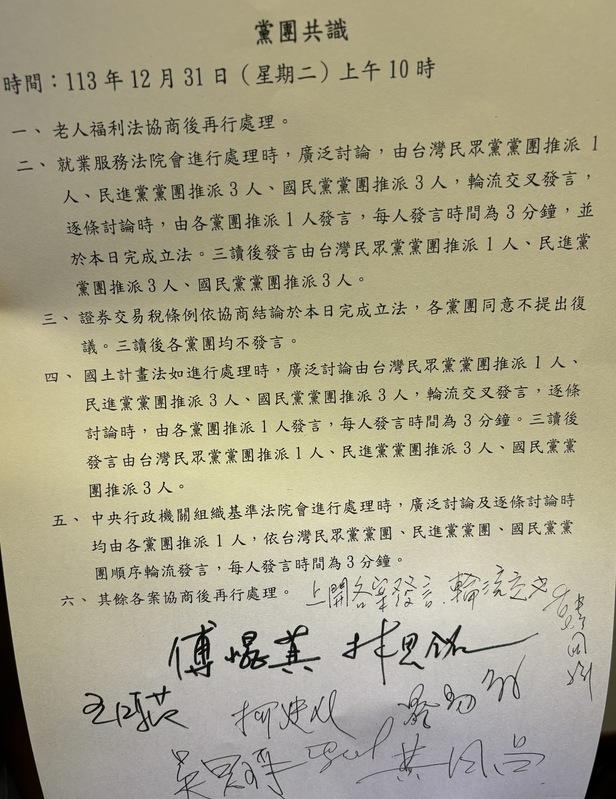 黨團共識
時間：113 年 12 月 31 日（星期二）上午 10 時
一、老人福利法協商後再行處理。
二、就業服務法院會進行處理時，廣泛討論，由台灣民眾黨黨團推派 1
人、民進黨黨團推派 3 人、國民黨黨團推派 3 人，輪流交叉發言，
逐條討論時，由各黨團推派 1 人發言，每人發言時間為 3 分鐘，並
於本日完成立法。三讀後發言由台灣民眾黨黨團推派 1 人、民進黨
黨團推派 3 人、國民黨黨團推派 3 人。
三、證券交易稅條例依協商結論於本日完成立法，各黨團同意不提出復
議。三讀後各黨團均不發言。
四、國土計畫法如進行處理時，廣泛討論由台灣民眾黨黨團推派 1 人、
民進黨黨團推派 3 人、國民黨黨團推派 3 人，輪流交叉發言，逐條
討論時，由各黨團推派 1 人發言，每人發言時間為 3 分鐘。三讀後
發言由台灣民眾黨黨團推派 1 人、民進黨黨團推派 3 人、國民黨黨
團推派 3 人。
五、中央行政機關組織基準法院會進行處理時，廣泛討論及逐條討論時
均由各黨團推派 1 人，依台灣民眾黨黨團、民進黨黨團、國民黨黨
團順序輪流發言，每人發言時間為 3 分鐘。
六、其餘各案協商後再行處理。上開各案發言輪流交叉
傅崐萁 林思銘
柯建 吳思瑤 黃國昌